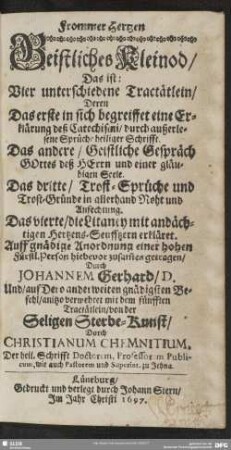 Frommer Hertzen
Geistliches Kleinod/
Das ist:
Vier unterschiedene Tractätlein/
Deren
Das erste in sich begreiffet eine Er-
klärung deß Catechismi/ durch außerle-
sene Sprüche heiliger Schrifft.
Das andere/ Geistliche Gespräch
GOttes deß HErrn und einer gläu-
bigen Seele.
Das dritte/ Trost-Sprüche und
Trost-Gründe in allerhand Noht und
Anfechtung.
Das vierte/ die Litaney mit andäch-
tigen Hertzens-Seufftzern erkläret.
Auff gnädige Anordnung einer hohen
Fürstl. Person hiebevor zusammen getragen/
Durch
JOHANNEM Gerhard/ D.
Und/ auff Dero anderweiten gnädigsten Be-
fehl/ anitzo vermehret mit dem fünfften
Tractätlein/ von der
Seligen Sterbe-Kunst/
Durch
CHRISTIANUM CHEMNITIUM,
Der heil. Schrifft Doctorem, Professorem Publi-
cum, wie auch Pastorem und Superint. zu Jehna.
Lüneburg/
Gedruckt und verlegt durch Johann Stern/
Im Jahr Christi 1697.
SLUB